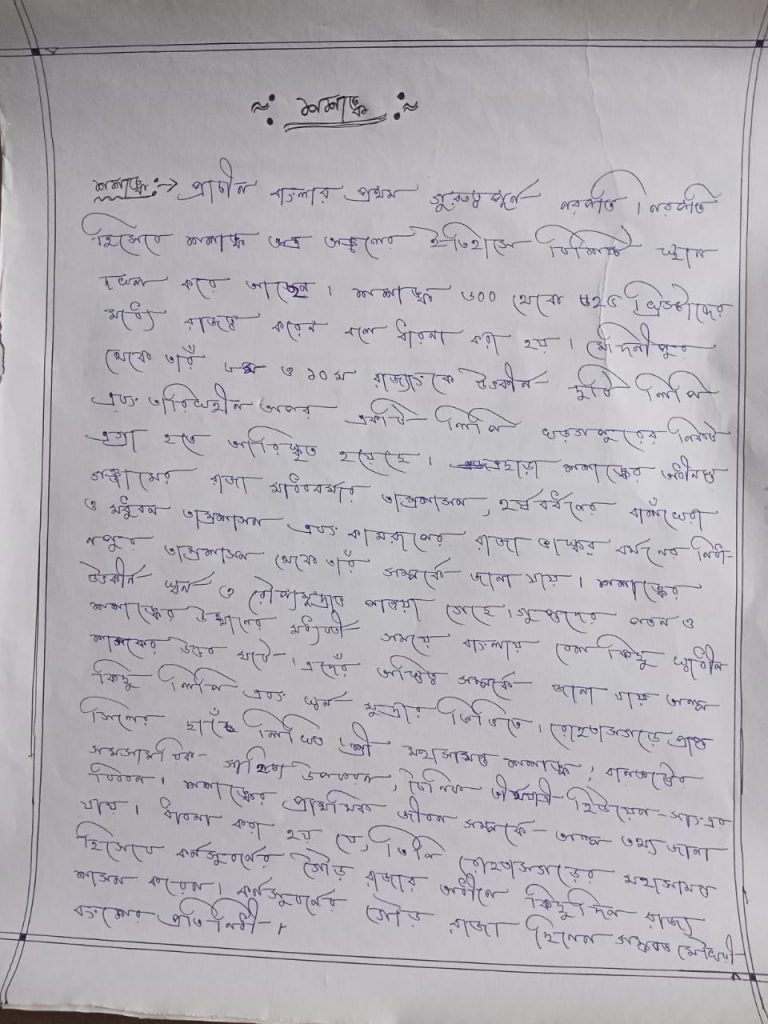 শশাঙ্ক
শশাঙ্ক :→ প্রাচীন বাংলার প্রথম গুরুত্বপূর্ন নরপতি। নরপতি
হিসেবে শশাঙ্ক অত্র অঞ্চলের ইতিহাসে বিশিষ্ট স্থান
দখল করে আছেন। শশাঙ্ক ৬০০ থেকে ৬২৫ খ্রিস্টাব্দের
মধ্যে রাজত্ব করেন বলে ধারনা করা হয়। মেদিনীপুর
থেকে তাঁর ৮ম ও ১০ম রাজ্যাঙ্কে উৎকীর্ন দুটি লিপি
এবং তারিখহীন অপর একটি লিপি খড়গপুরের নিকট
এগ্রা হতে আবিষ্কৃত হয়েছে। এছাড়া শশাঙ্কের অধীনস্থ
গঞ্জামের রাজা মাধববর্মার তাম্রশাসন, হর্ষবর্ধনের বাঁশখেরা
ও মধুবন তাম্রশাসন এবং কামরূপের রাজা ভাস্কর বর্মনের নিধ-
নপুর তাম্রশাসন থেকে তাঁর সম্পর্কে জানা যায়। শশাঙ্কের
উৎকীর্ন স্বর্ন ও রৌপ্যমুদ্রাও পাওয়া গেছে। গুপ্তদের পতন ও
শশাঙ্কের উত্থানের মধ্যবর্তী সময়ে বাংলায় বেশ কিছু স্বাধীন
শাসকের উদ্ভব ঘটে। এদেঁর অস্তিত্ব সম্পর্কে জানা যায় অল্প
কিছু লিপি এবং স্বর্ন মুদ্রার ভিত্তিতে। রোহতাসগড়ে প্রাপ্ত
সিলের ছাঁচে লিখিত শ্রী মহাসামন্ত শশাঙ্ক, বানভট্টের
সমসাময়িক সাহিত্য উপকরন, চৈনিক তীর্থযাত্রী হিউয়েন-সাং এর
বিবরন। শশাঙ্কের প্রাথমিক জীবন সম্পর্কে অল্প তথ্য জানা
যায়। ধারনা করা হয় যে, তিনি রোহতাসগড়ের মহাসামন্ত
হিসেবে কর্নসুবর্নের গৌড় রাজার অধীনে কিছুদিন রাজ্য
শাসন করেন। কর্নসুবর্নের গৌড় রাজা ছিলেন সম্ভবত মৌখরী
বংশের প্রতিনিধী।